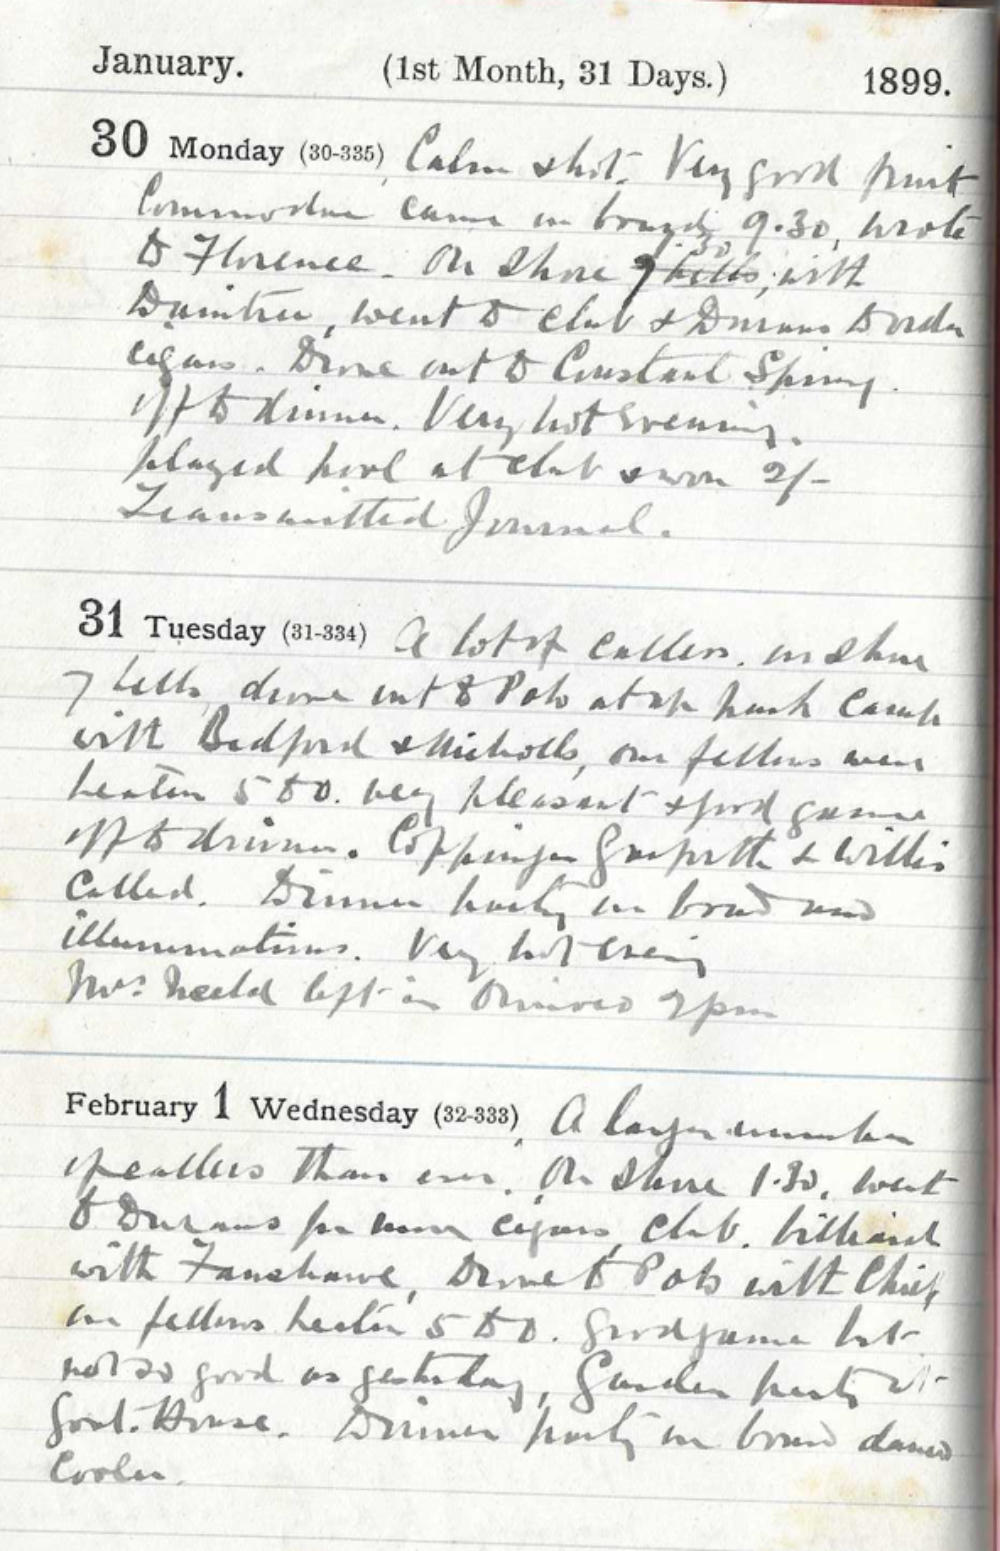 January. (1st Month, 31 Days.) 1899.
30 Monday (30-335) Calm & hot. Very good fruit
Commodore came on board 9.30, wrote
to Florence. On shore 1.30 7 bells, with
Daintree, went to club & Durans to order
cigars. Drove out to Constant Spring.
off to dinner. Very hot evening.
played pool at club & won 2/-
Transmitted Journal.
31 Tuesday (31-334) A lot of callers. on shore
7 bells, drove out to Polo at up park Camp
with Bedford & Nicholls, our fellows were
beaten 5 to 0. very pleasant & good game
off to dinner. Coppinger & Willis
called. Dinner party on board and
illuminations. Very hot evening
Mrs. left in 9pm
February 1 Wednesday (32-333) A larger number
of callers than ever. On shore 1.30, went
to Durans for more cigars, club. billiards
with Fanshawe, Drove to Polo with Chief,
our fellows beaten 5 to 0. Good game but
not so good as yesterday, Garden party at
Govt. House. Dinner party on board
Cooler.